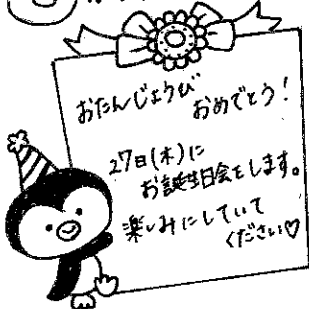 おたんじょうび
おめでとう!
27日(木)に
お誕生日会をします。
楽しみにしていて
ください♡